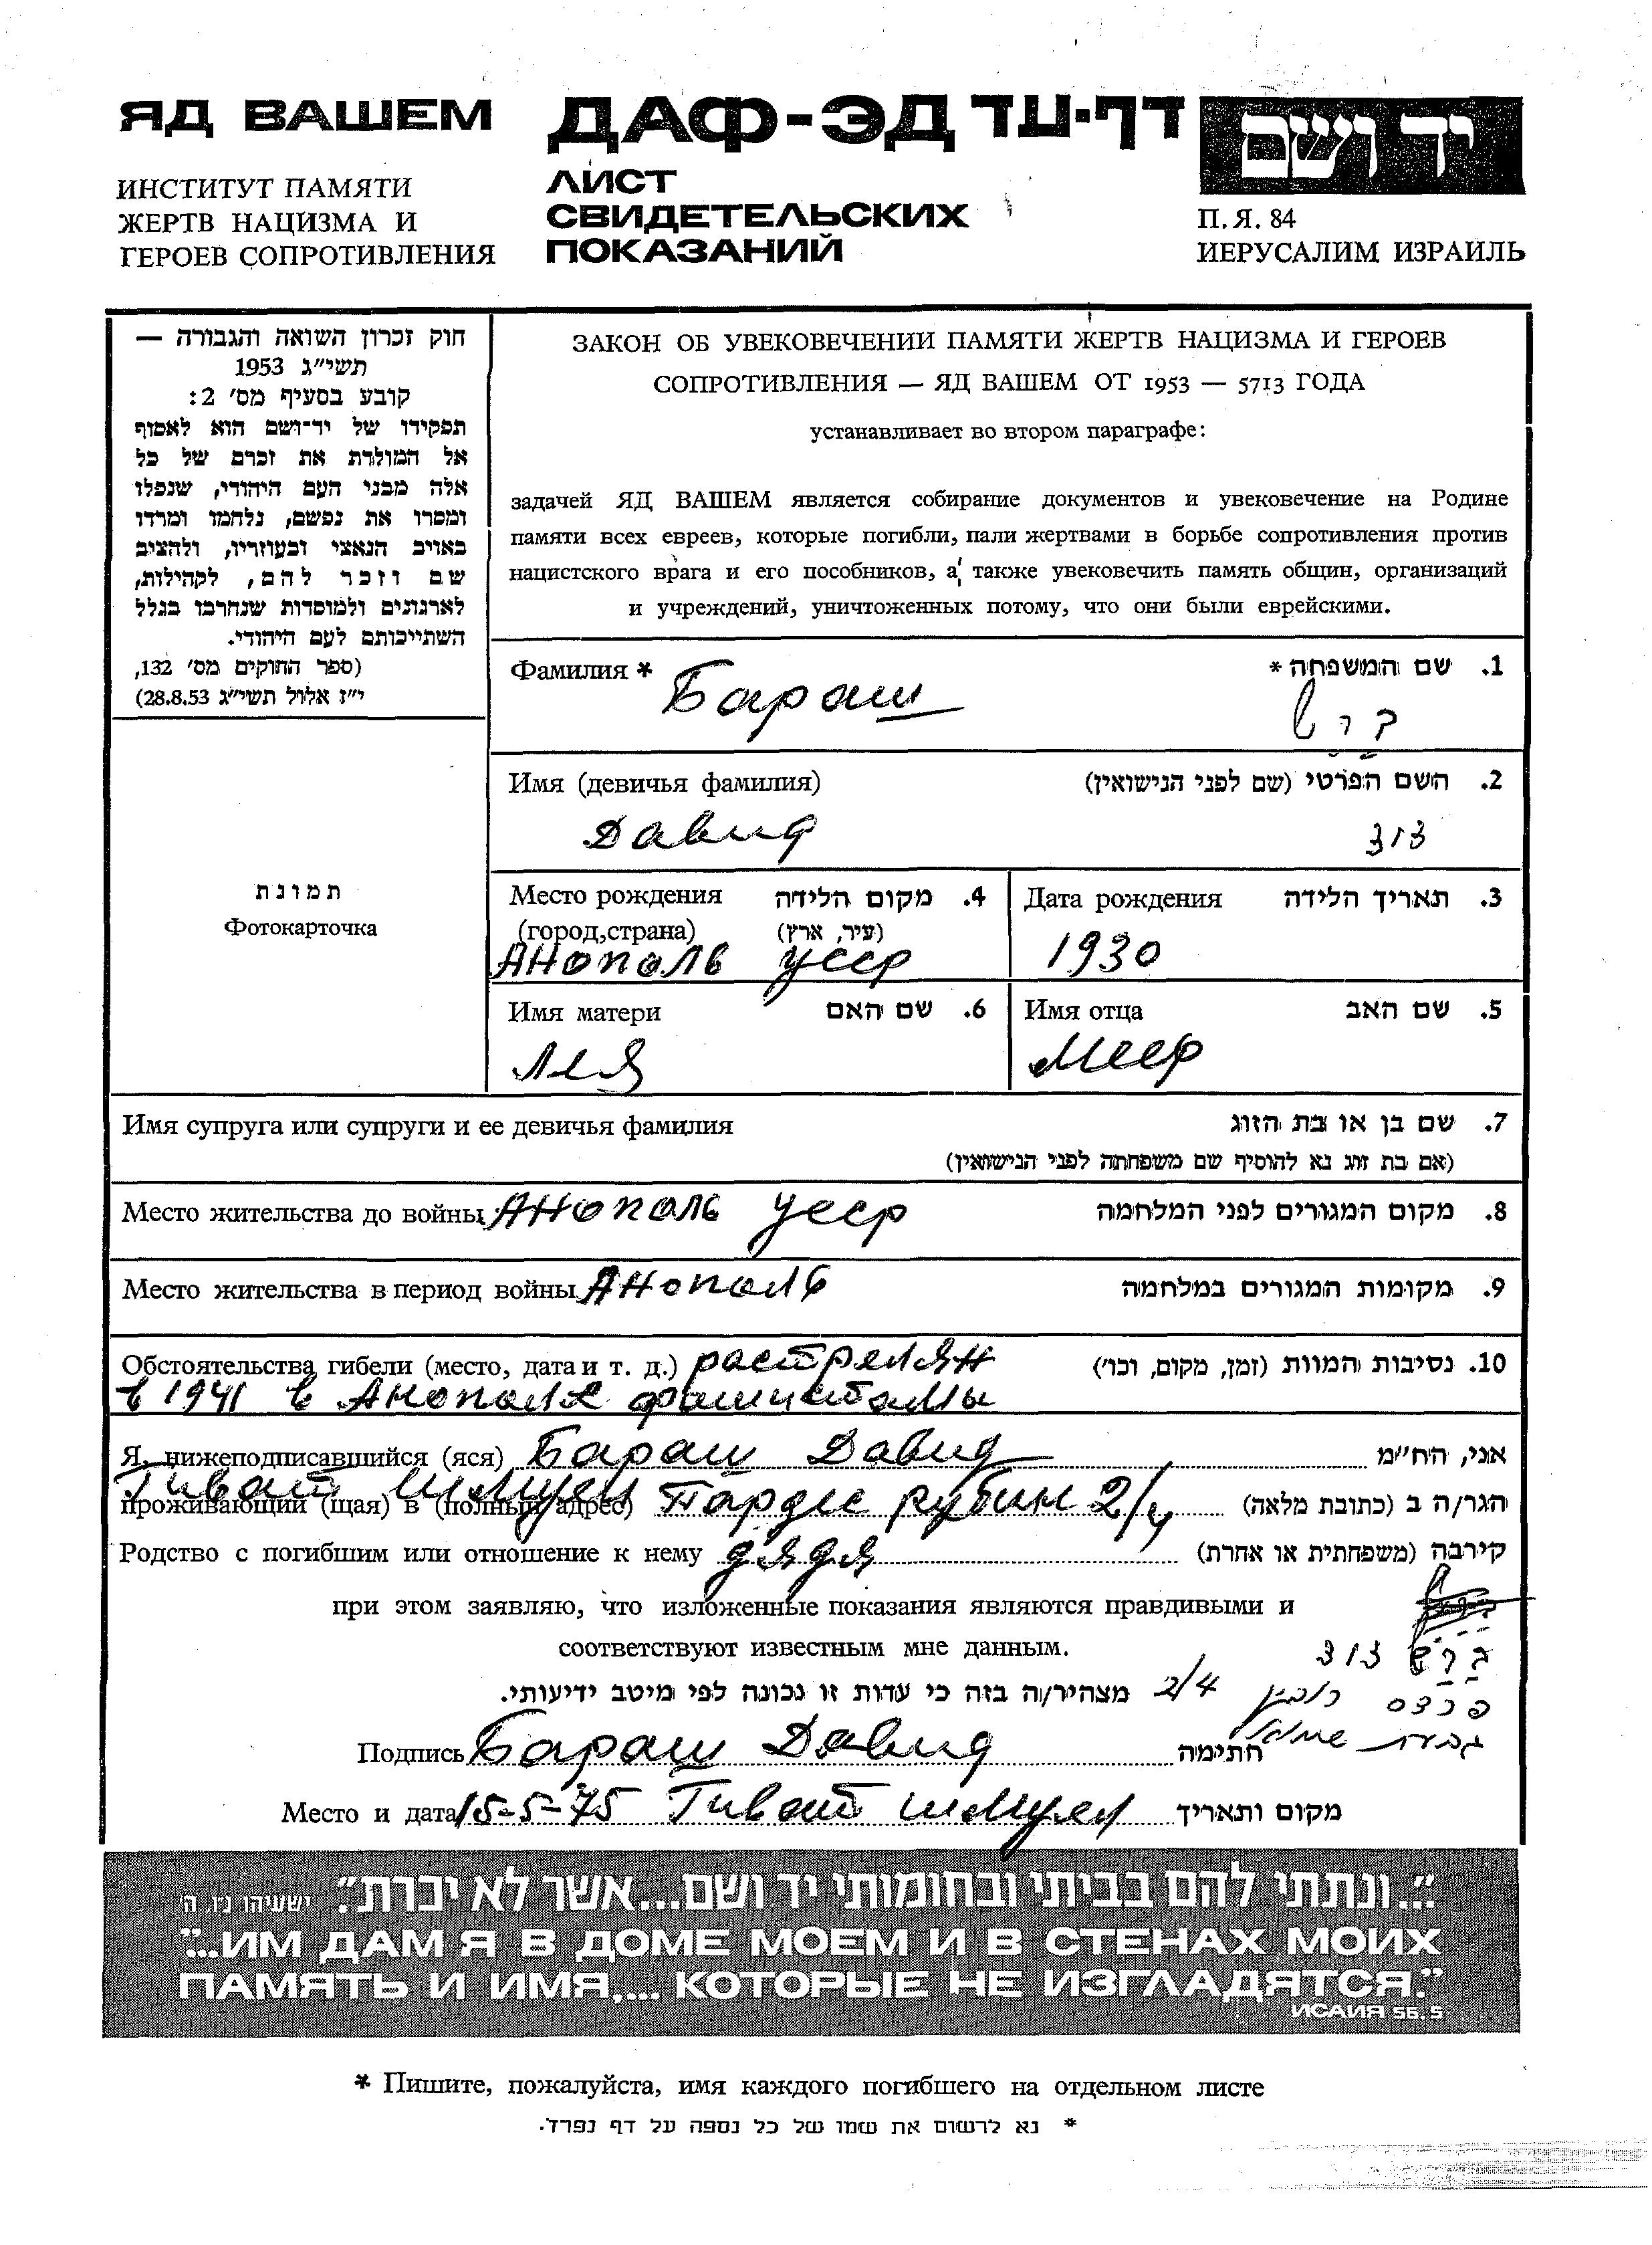 ЯД ВАШЕМ
ИНСТИТУТ ПАМЯТИ
ЖЕРТВ НАЦИЗМА И
ГЕРОЕВ СОПРОТИВЛЕНИЯ
ДАФ-ЭД דף-עד
ЛИСТ
СВИДЕТЕЛЬСКИХ
ПОКАЗАНИЙ
יד ושם
П. Я. 84
ИЕРУСАЛИМ ИЗРАИЛЬ
חוק זכרון השואה והגבורה —
תשי״ג 1953
קובע בסעיף מס׳ 2:
תפקידו של יד־ושם הוא לאסוף
אל המולדת את זכרם של כל
אלה מבני העם היהודי, שנפלו
ומסרו את נפשם, נלחמו ומרדו
באויב הנאצי ובעוזריו, ולהציב
שם וזכר להם, לקהילות,
לארגונים ולמוסדות שנחרבו בגלל
השתייכותם לעם היהודי.
(ספר החוקים מס׳ 132,
י״ז אלול תשי״ג 28.8.53)
ЗАКОН ОБ УВЕКОВЕЧЕНИИ ПАМЯТИ ЖЕРТВ НАЦИЗМА И ГЕРОЕВ
СОПРОТИВЛЕНИЯ — ЯД ВАШЕМ ОТ 1953 — 5713 ГОДА
устанавливает во втором параграфе:
задачей ЯД ВАШЕМ является собирание документов и увековечение на Родине
памяти всех евреев, которые погибли, пали жертвами в борьбе сопротивления против
нацистского врага и его пособников, а также увековечить память общин, организаций
и учреждений, уничтоженных потому, что они были еврейскими.
Фамилия * 1. שם המשפחה *
Бараш ברש
Имя (девичья фамилия) 2. השם הפרטי (שם לפני הנישואין)
Давид דוד
תמונת
Фотокарточка
Место рождения 4. מקום הלידה
(город,страна) (עיר, ארץ)
Анополь УССР
Дата рождения 3. תאריך הלידה
1930
Имя матери 6. שם האם
Лея
Имя отца 5. שם האב
Меер
Имя супруга или супруги и ее девичья фамилия 7. שם בן או בת הזוג
(אם בת זוג נא להוסיף שם משפחתה לפני הנישואין)
Место жительства до войны Анополь УССР 8. מקום המגורים לפני המלחמה
Место жительства в период войны Анополь 9. מקומות המגורים במלחמה
Обстоятельства гибели (место, дата и т. д.) растрелян 10. נסיבות המוות (זמן, מקום, וכו׳)
в 1941 в Анополе фашистами
Я, нижеподписавшийся (яся) Бараш Давид אני, הח״מ
Гиват Шмуел
проживающий (щая) в (полный адрес) Пардес рубин 2/4 הגר/ה ב (כתובת מלאה)
Родство с погибшим или отношение к нему дядя קירבה (משפחתית או אחרת)
при этом заявляю, что изложенные показания являются правдивыми и
соответствуют известным мне данным.
ברש דוד
מצהיר/ה בזה כי עדות זו נכונה לפי מיטב ידיעותי.
פרדס רובין 2/4
גבעת שמואל
Подпись Бараш Давид חתימה
Место и дата 15-5-75 Гиват шмуел מקום ותאריך
״...ונתתי להם בביתי ובחומותי יד ושם...אשר לא יכרת״. ישעיהו נ״ו, ה׳
"...ИМ ДАМ Я В ДОМЕ МОЕМ И В СТЕНАХ МОИХ
ПАМЯТЬ И ИМЯ.... КОТОРЫЕ НЕ ИЗГЛАДЯТСЯ."
ИСАИЯ 56. 5
* Пишите, пожалуйста, имя каждого погибшего на отдельном листе
* נא לרשום את שמו של כל נספה על דף נפרד.